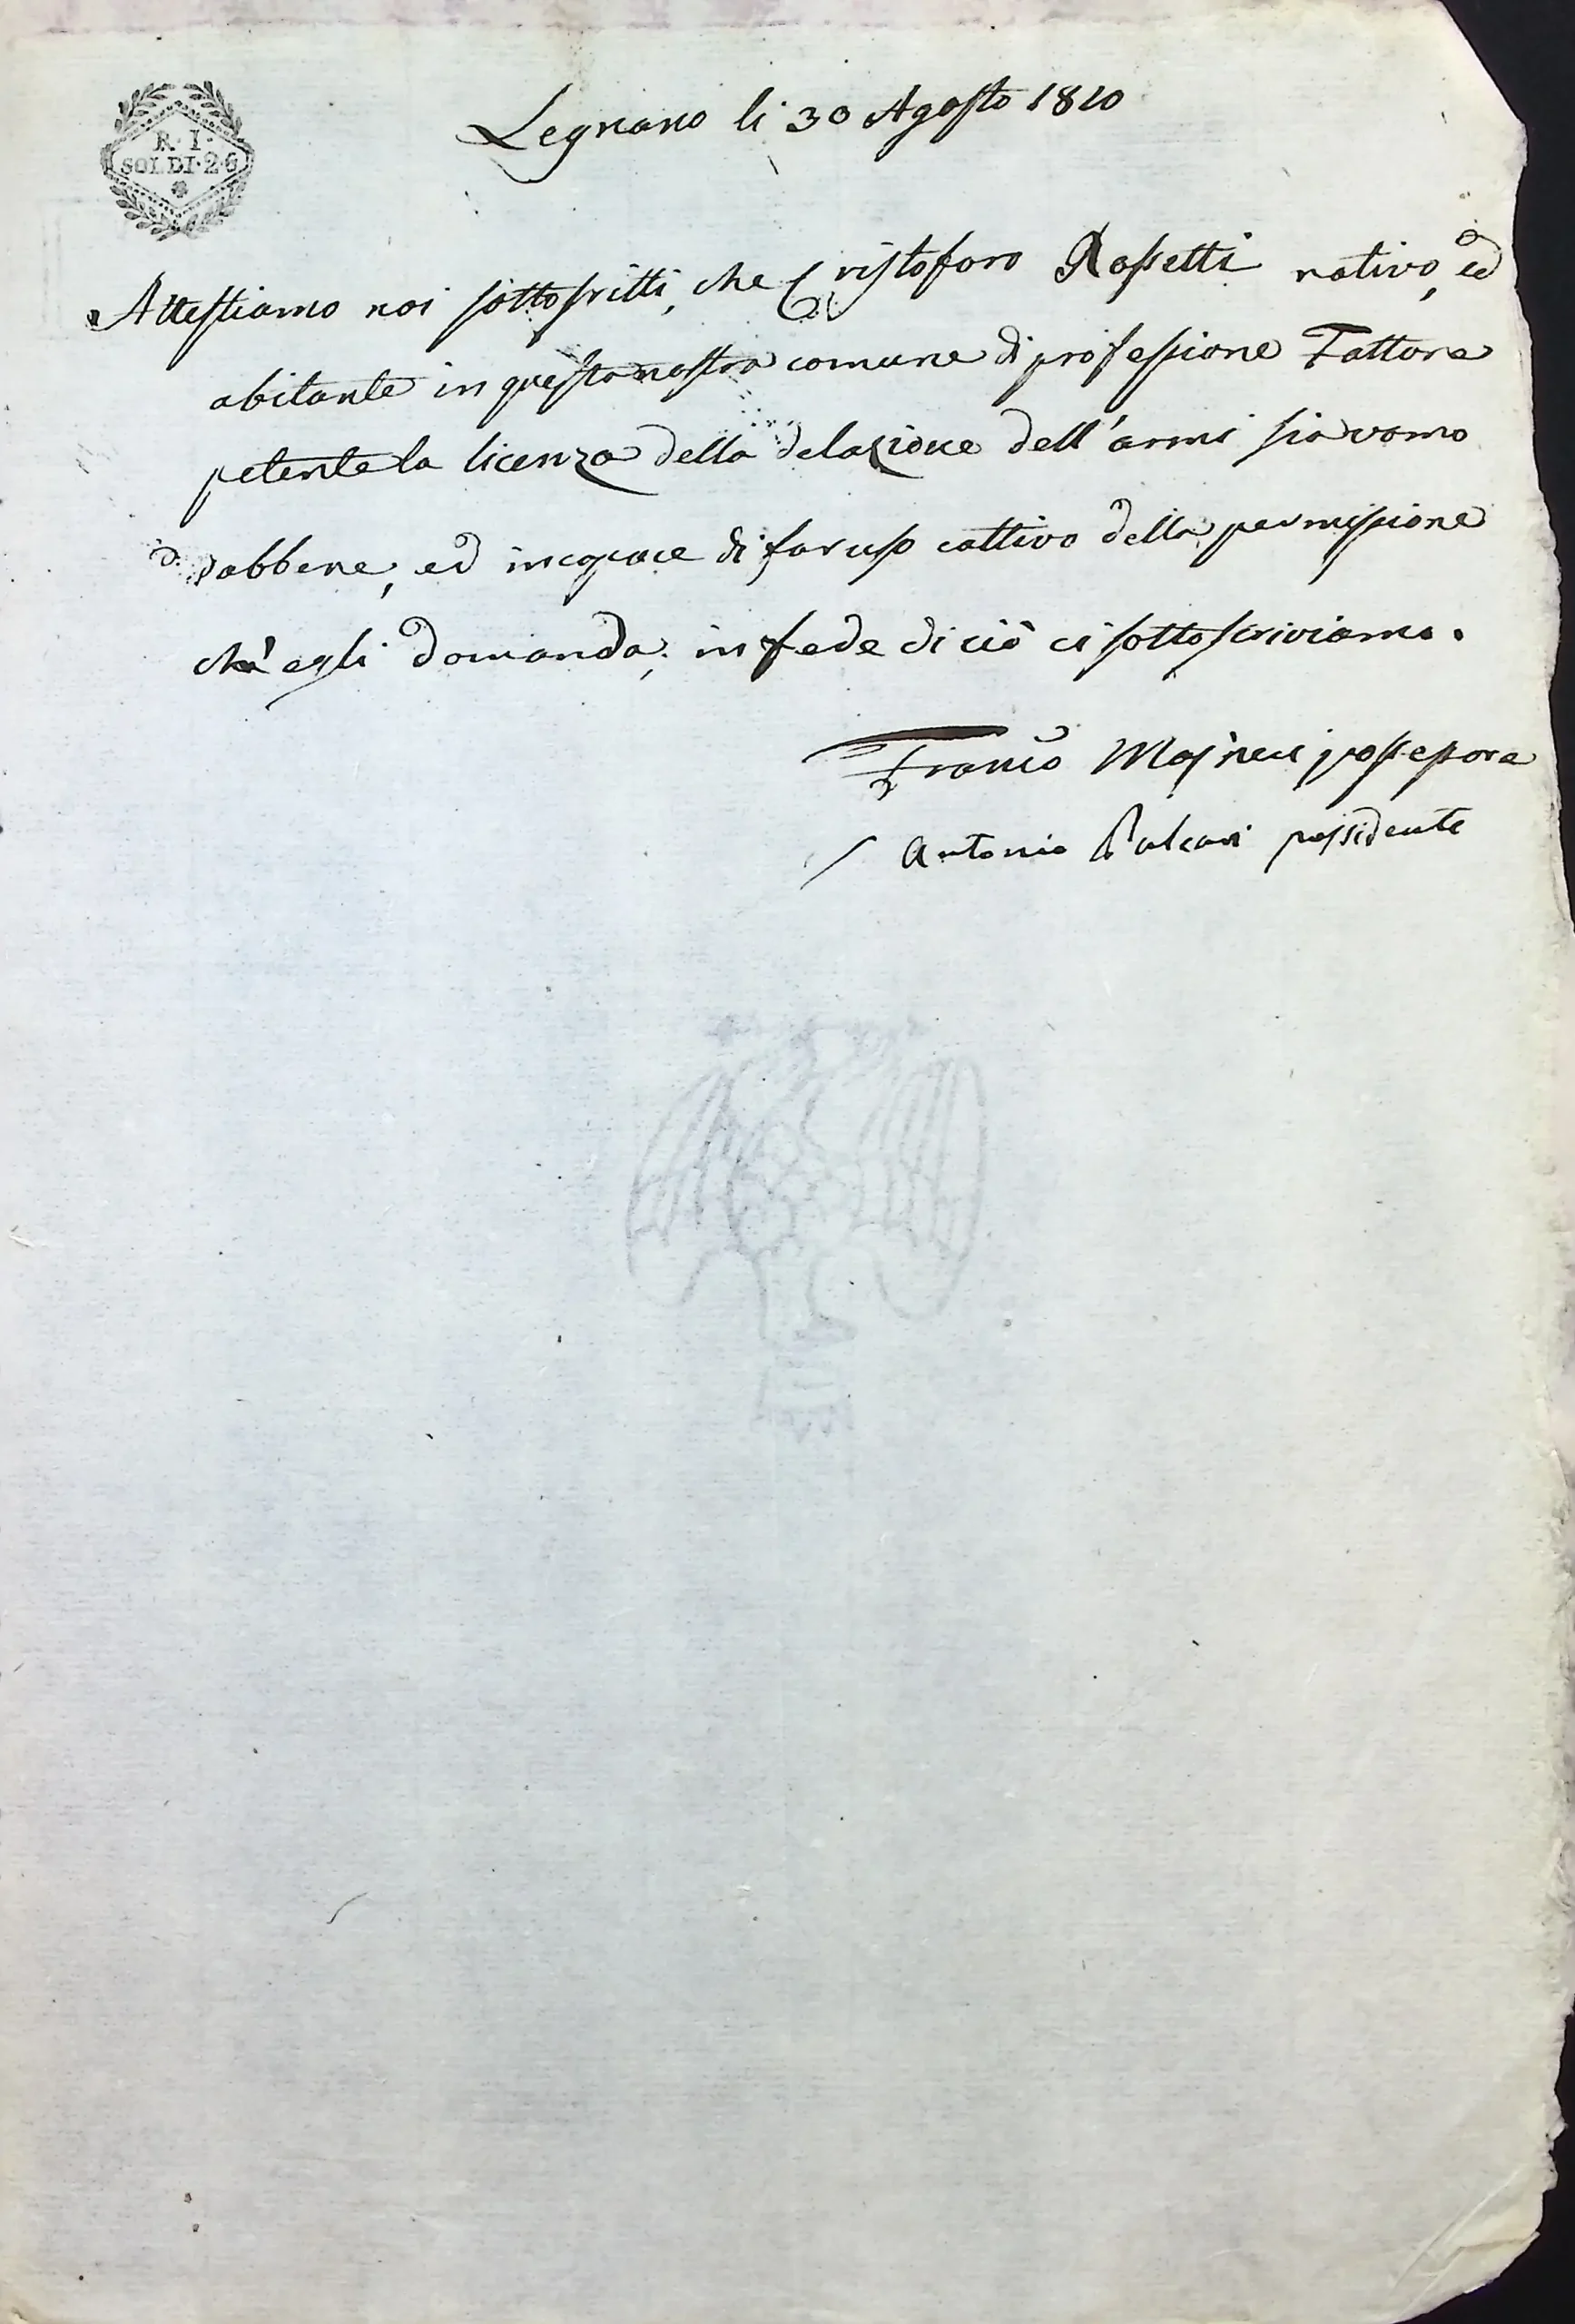 R. I.
SOLDI. 26
Legnano li 30 Agosto 1810
Attestiamo noi sottoscritti, che Cristoforo Rossetti nativo, ed
abitante in questa nostra comune di professione Fattore
petente la licenza della delazione dell'armi sia uomo
dabbene, ed incapace di far uso cattivo della permissione
ch'egli domanda; in fede di ciò ci sottoscriviamo.
possessore
Antonio possidente